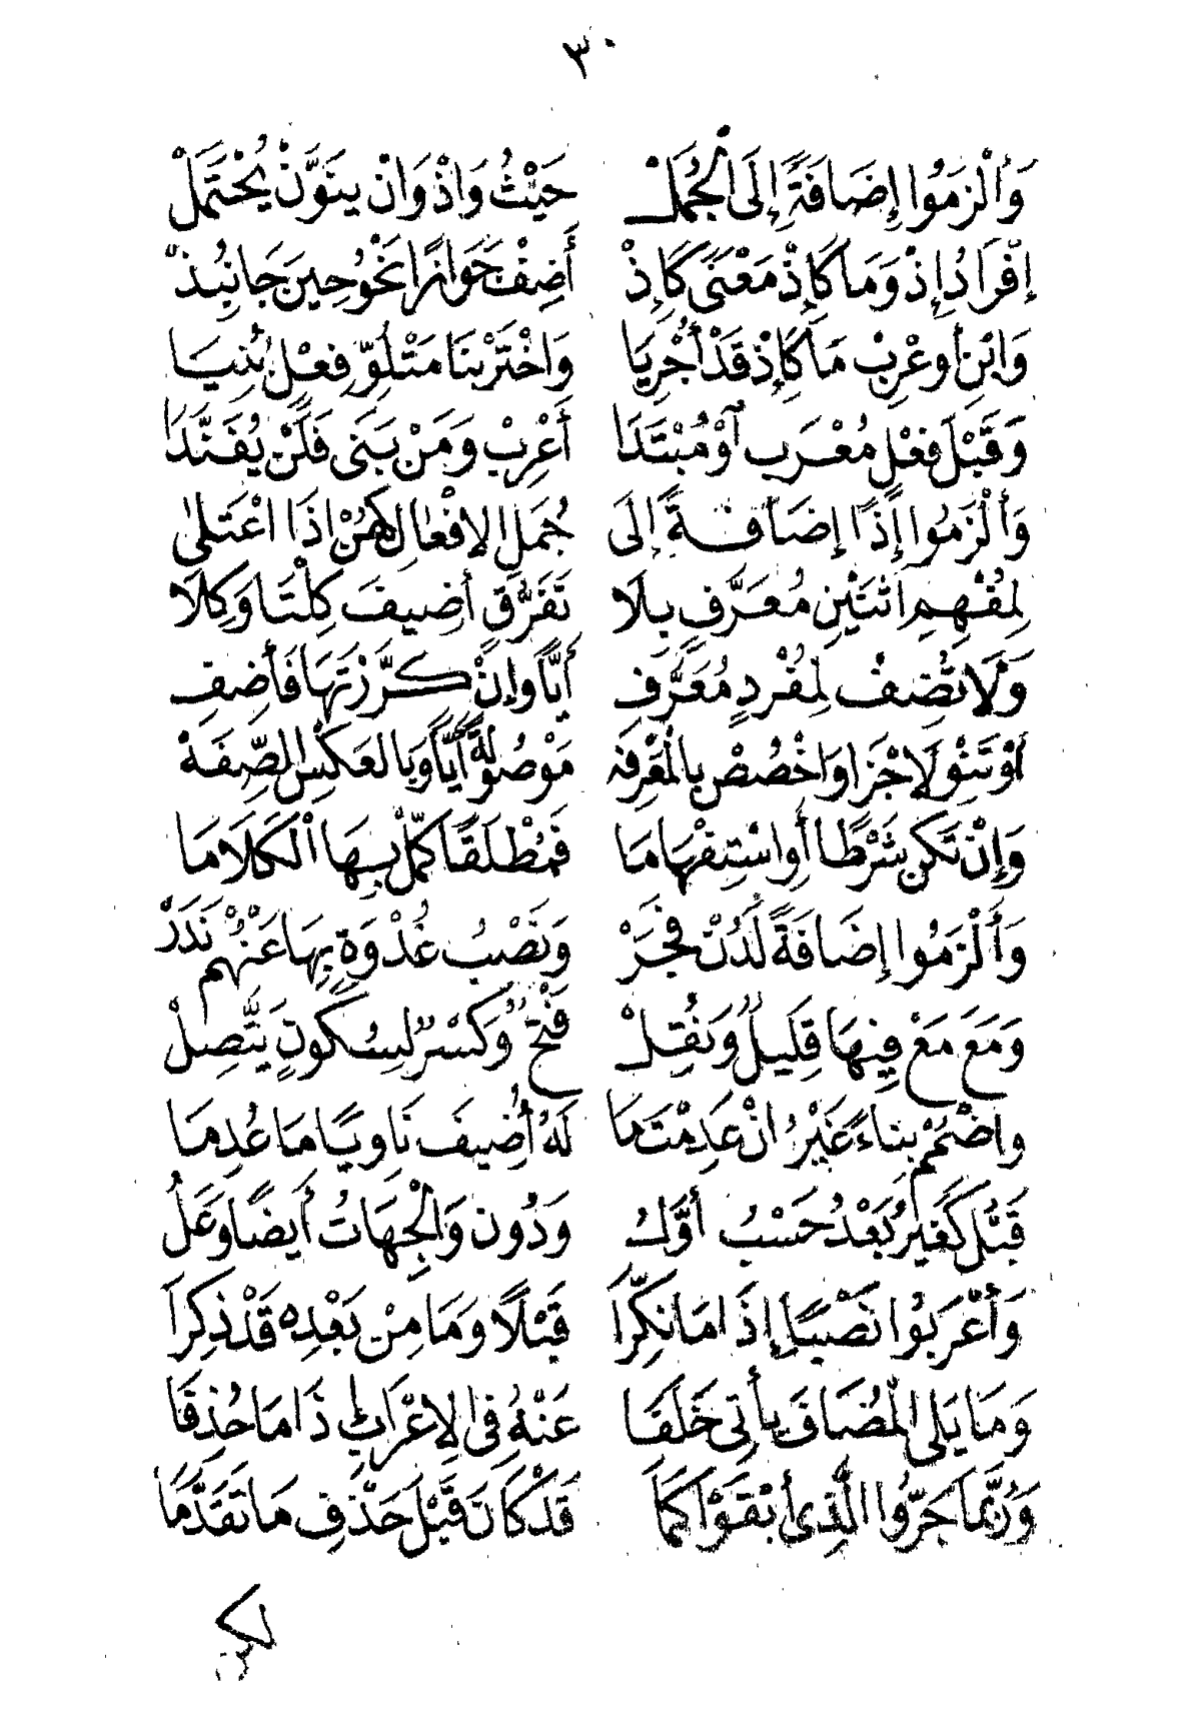 ٣٠
وَأَلْزَمُوا إِضَافَةً إِلَى الْجُمَلْ حَيْثُ وَاِذْ وَاِنْ يُنَوَّنْ يُحْتَمَلْ
إِفْرَادُ إِذْ وَمَا كَإِذْ مَعْنًى كَإِذْ أَضِفْ جَوَازًا نَحْوُ حِينَ جَا نُبِذْ
وَابْنِ أَوِ عْرِبْ مَا كَإِذْ قَدْ أُجْرِيَا وَاخْتَرْ بِنَا مَتْلُوِّ فِعْلٍ بُنِيَا
وَقَبْلَ فِعْلٍ مُعْرَبٍ أَوْ مُبْتَدَا أَعْرِبْ وَمَنْ بَنَى فَلَنْ يُفَنَّدَا
وَأَلْزَمُوا إِذًا إِضَافَةً إِلَى جُمَلِ الافْعَالِ كَهُنْ اذَا اعْتَلَى
لِمُفْهِمِ اثْنَيْنِ مُعَرَّفٍ بِلَا تَفَرُّقٍ أُضِيفَ كِلْتَا وَكِلَا
وَلَا تُضِفْ لِمُفْرَدٍ مُعَرَّفِ أَيًّا وَإِنْ كَرَّرْتَهَا فَأَضِفِ
أَوْ تَنْوِ لَاجْزَا وَاخْصُصْ بِالْمَعْرِفَه مَوْصُولَةً أَيًّا وَبِالعَكْسِ الصِّفَهْ
وَإِنْ تَكُنْ شَرْطًا أَوِ اسْتِفْهَامَا فَمُطْلَقًا كَمِّلْ بِهَا الْكَلَامَا
وَأَلْزَمُوا إِضَافَةً لَدُنْ فَجَرْ وَنَصْبُ غُدْوَةٍ بِهَا عَنْهُمْ نَدَرْ
وَمَعَ مَعْ فِيهَا قَلِيلٌ وَنُقِلْ فَتْحٌ وَكَسْرٌ لِسُكُونٍ يَتَّصِلْ
وَاضْمُمْ بِنَاءً غَيْرُ انْ عَدِمْتَ مَا لَهُ أُضِيفَ نَاوِيًا مَا عُدِمَا
قَبْلُ كَغَيْرُ بَعْدُ حَسْبُ أَوَّلُ وَدُونَ وَالْجِهَاتُ أَيضًا وَعَلُ
وَأَعْرَبُوا نَصْبًا إِذَا مَا نُكِّرَا قَبْلًا وَمَا مِنْ بَعْدِهِ قَدْ ذُكِرَا
وَمَا يَلِي الْمُضَافَ يَأْتِي خَلَفَا عَنْهُ فِي الِاعْرَابِ إِذَا مَا حُذِفَا
وَرُبَّمَا جَرُّوا الَّذِي أَبْقَوْا كَمَا قَدْ كَانَ قَبْلَ حَذْفِ مَا تَقَدَّمَا
لكن